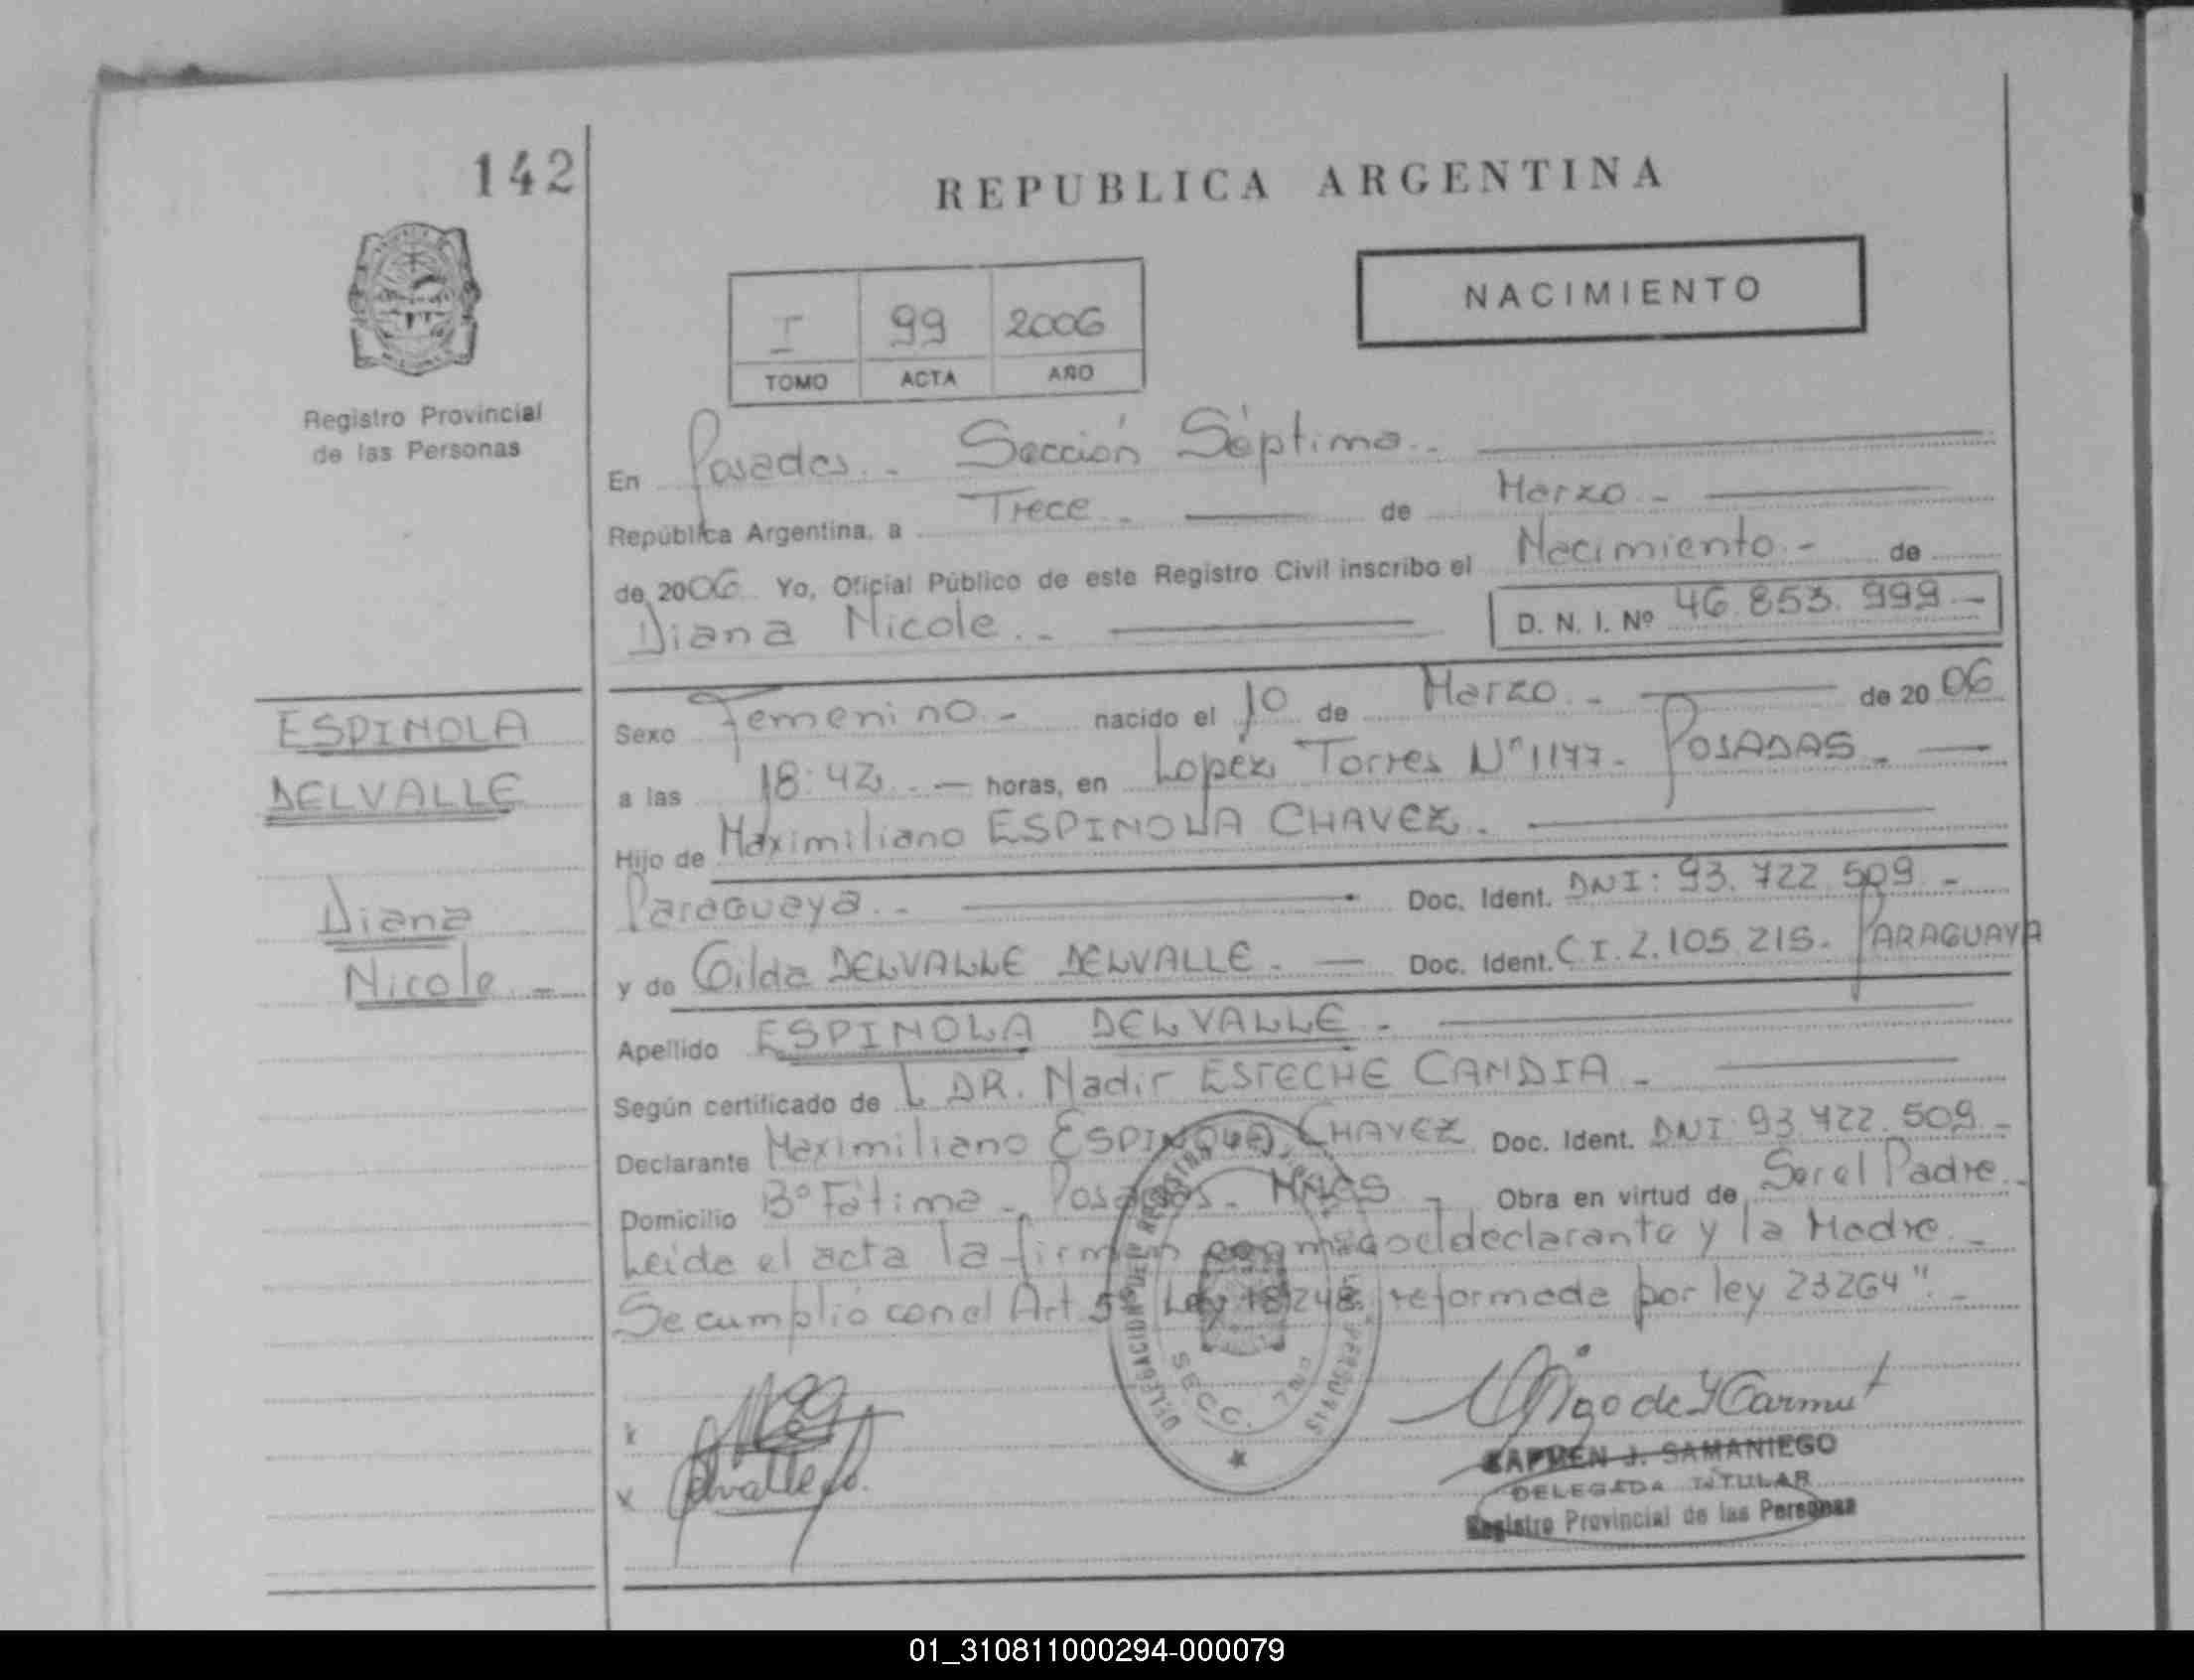 142
REPUBLICA ARGENTINA
NACIMIENTO
I 99 2006
TOMO ACTA AÑO
Registro Provincial
de las Personas
En Posadas.- Sección Séptima.-
República Argentina, a Trece.- de Marzo.-
de 2006 Yo, Oficial Público de este Registro Civil inscribo el Nacimiento.- de
Diana Nicole.- D. N. I. Nº 46.853.999.-
ESPINOLA
DELVALLE
Diana
Nicole.-
Sexo Femenino.- nacido el 10 de Marzo.- de 2006
a las 18:42.- horas, en Lopez Torres Nº 1177- POSADAS.-
Hijo de Maximiliano ESPINOLA CHAVEZ.
Paraguaya.- Doc. Ident. DNI: 93.722.509.-
y de Gilda DELVALLE DELVALLE.- Doc. Ident. C I. 2.105.215. PARAGUAYA
Apellido ESPINOLA DELVALLE.-
Según certificado de L DR. Nadir ESTECHE CANDIA.-
Declarante Maximiliano ESPINOLA CHAVEZ Doc. Ident. DNI 93.722.509.-
Domicilio Bº Fátima - Posadas. MNES - Obra en virtud de Ser el Padre.-
Leida el acta la firman conmigo el declarante y la Madre.-
Se cumplió con el Art 5º Ley 18248 reformada por ley 23264".-
DELEGACION DEL REGISTRO
SECC. 7ma
x
x Delvalle
CARMEN J. SAMANIEGO
DELEGADA TITULAR
Registro Provincial de las Personas
01_310811000294-000079